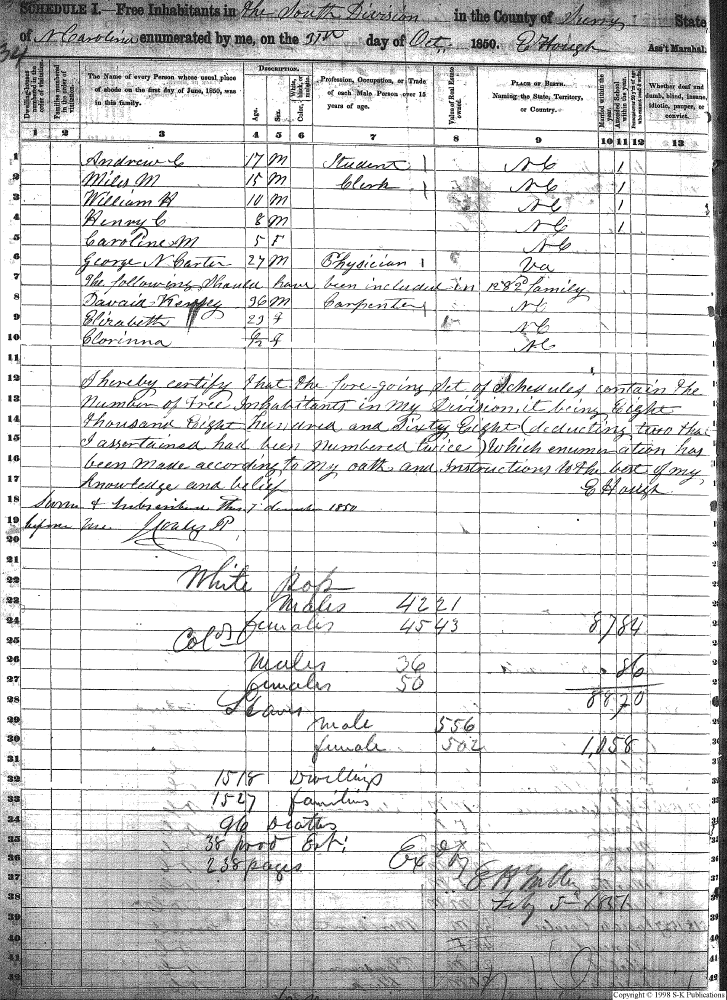 SCHEDULE I.—Free Inhabitants in The South Division in the County of Surry State
of N Carolina enumerated by me, on the 31st day of Oct, 1850. E Hough Ass't Marshal.
Dwelling-houses numbered in the order of visitation.
Families numbered in the order of visitation.
The Name of every Person whose usual place of abode on the first day of June, 1850, was in this family.
DESCRIPTION.
Age.
Sex.
White, Color, black, or mulatto.
Profession, Occupation, or Trade of each Male Person over 15 years of age.
Value of Real Estate owned.
PLACE OF BIRTH.
Naming the State, Territory, or Country.
Married within the year.
Attended School within the year.
Whether deaf and dumb, blind, insane, idiotic, pauper, or convict.
1 2 3 4 5 6 7 8 9 10 11 12 13
1 Andrew C 17 M Student 1 NC 1
2 Miles M 15 M Clerk 1 NC 1
3 William H 10 M NC 1
4 Henry C 8 M NC 1
5 Caroline M 5 F NC
6 George N Carter 27 M Physician 1 Va
7 The following Should have been included in 1282 family
8 36 M Carpenter NC
9 Elizabeth 23 F NC
10 Clorinna F NC
11
12 I hereby certify that the fore-going Set of Schedules contain the
13 Number of Free Inhabitants in my Division it being Eight
14 thousand Eight hundred and Sixty Eight (deducting two that
15 I assertained had been numbered twice) Which enumeration has
16 been made according to my oath and Instructions to the best of my
17 Knowledge and belief E Hough
18 Sworn & Subscribed This 7 december 1850
19 before me
20
21
22 White pop
23 Males 4221
24 females 4543 8784
25 Cold
26 Males 36 86
27 females 50
28 Slaves 8870
29 male 556
30 female 502 1,058
31
32 1518 Dwellings
33 1527 families
34 96 Deaths
35 38 prod Est;
36 238 pages Ex by
37 E H
38 Feby 5 1851
39
40
41
42
Copyright © 1998 S-K Publications